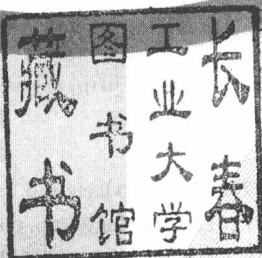 长春
工业大学
图书馆
藏书